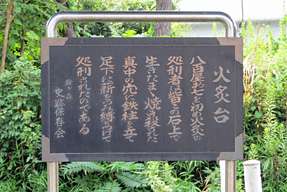 火炙台
八百屋お七を初め火炙の
処刑者は皆この石上で
生きたまゝ焼き殺された
真中の穴に鉄柱を立て
足下に薪をつみ縛り付けて
処刑されたのである
保存会